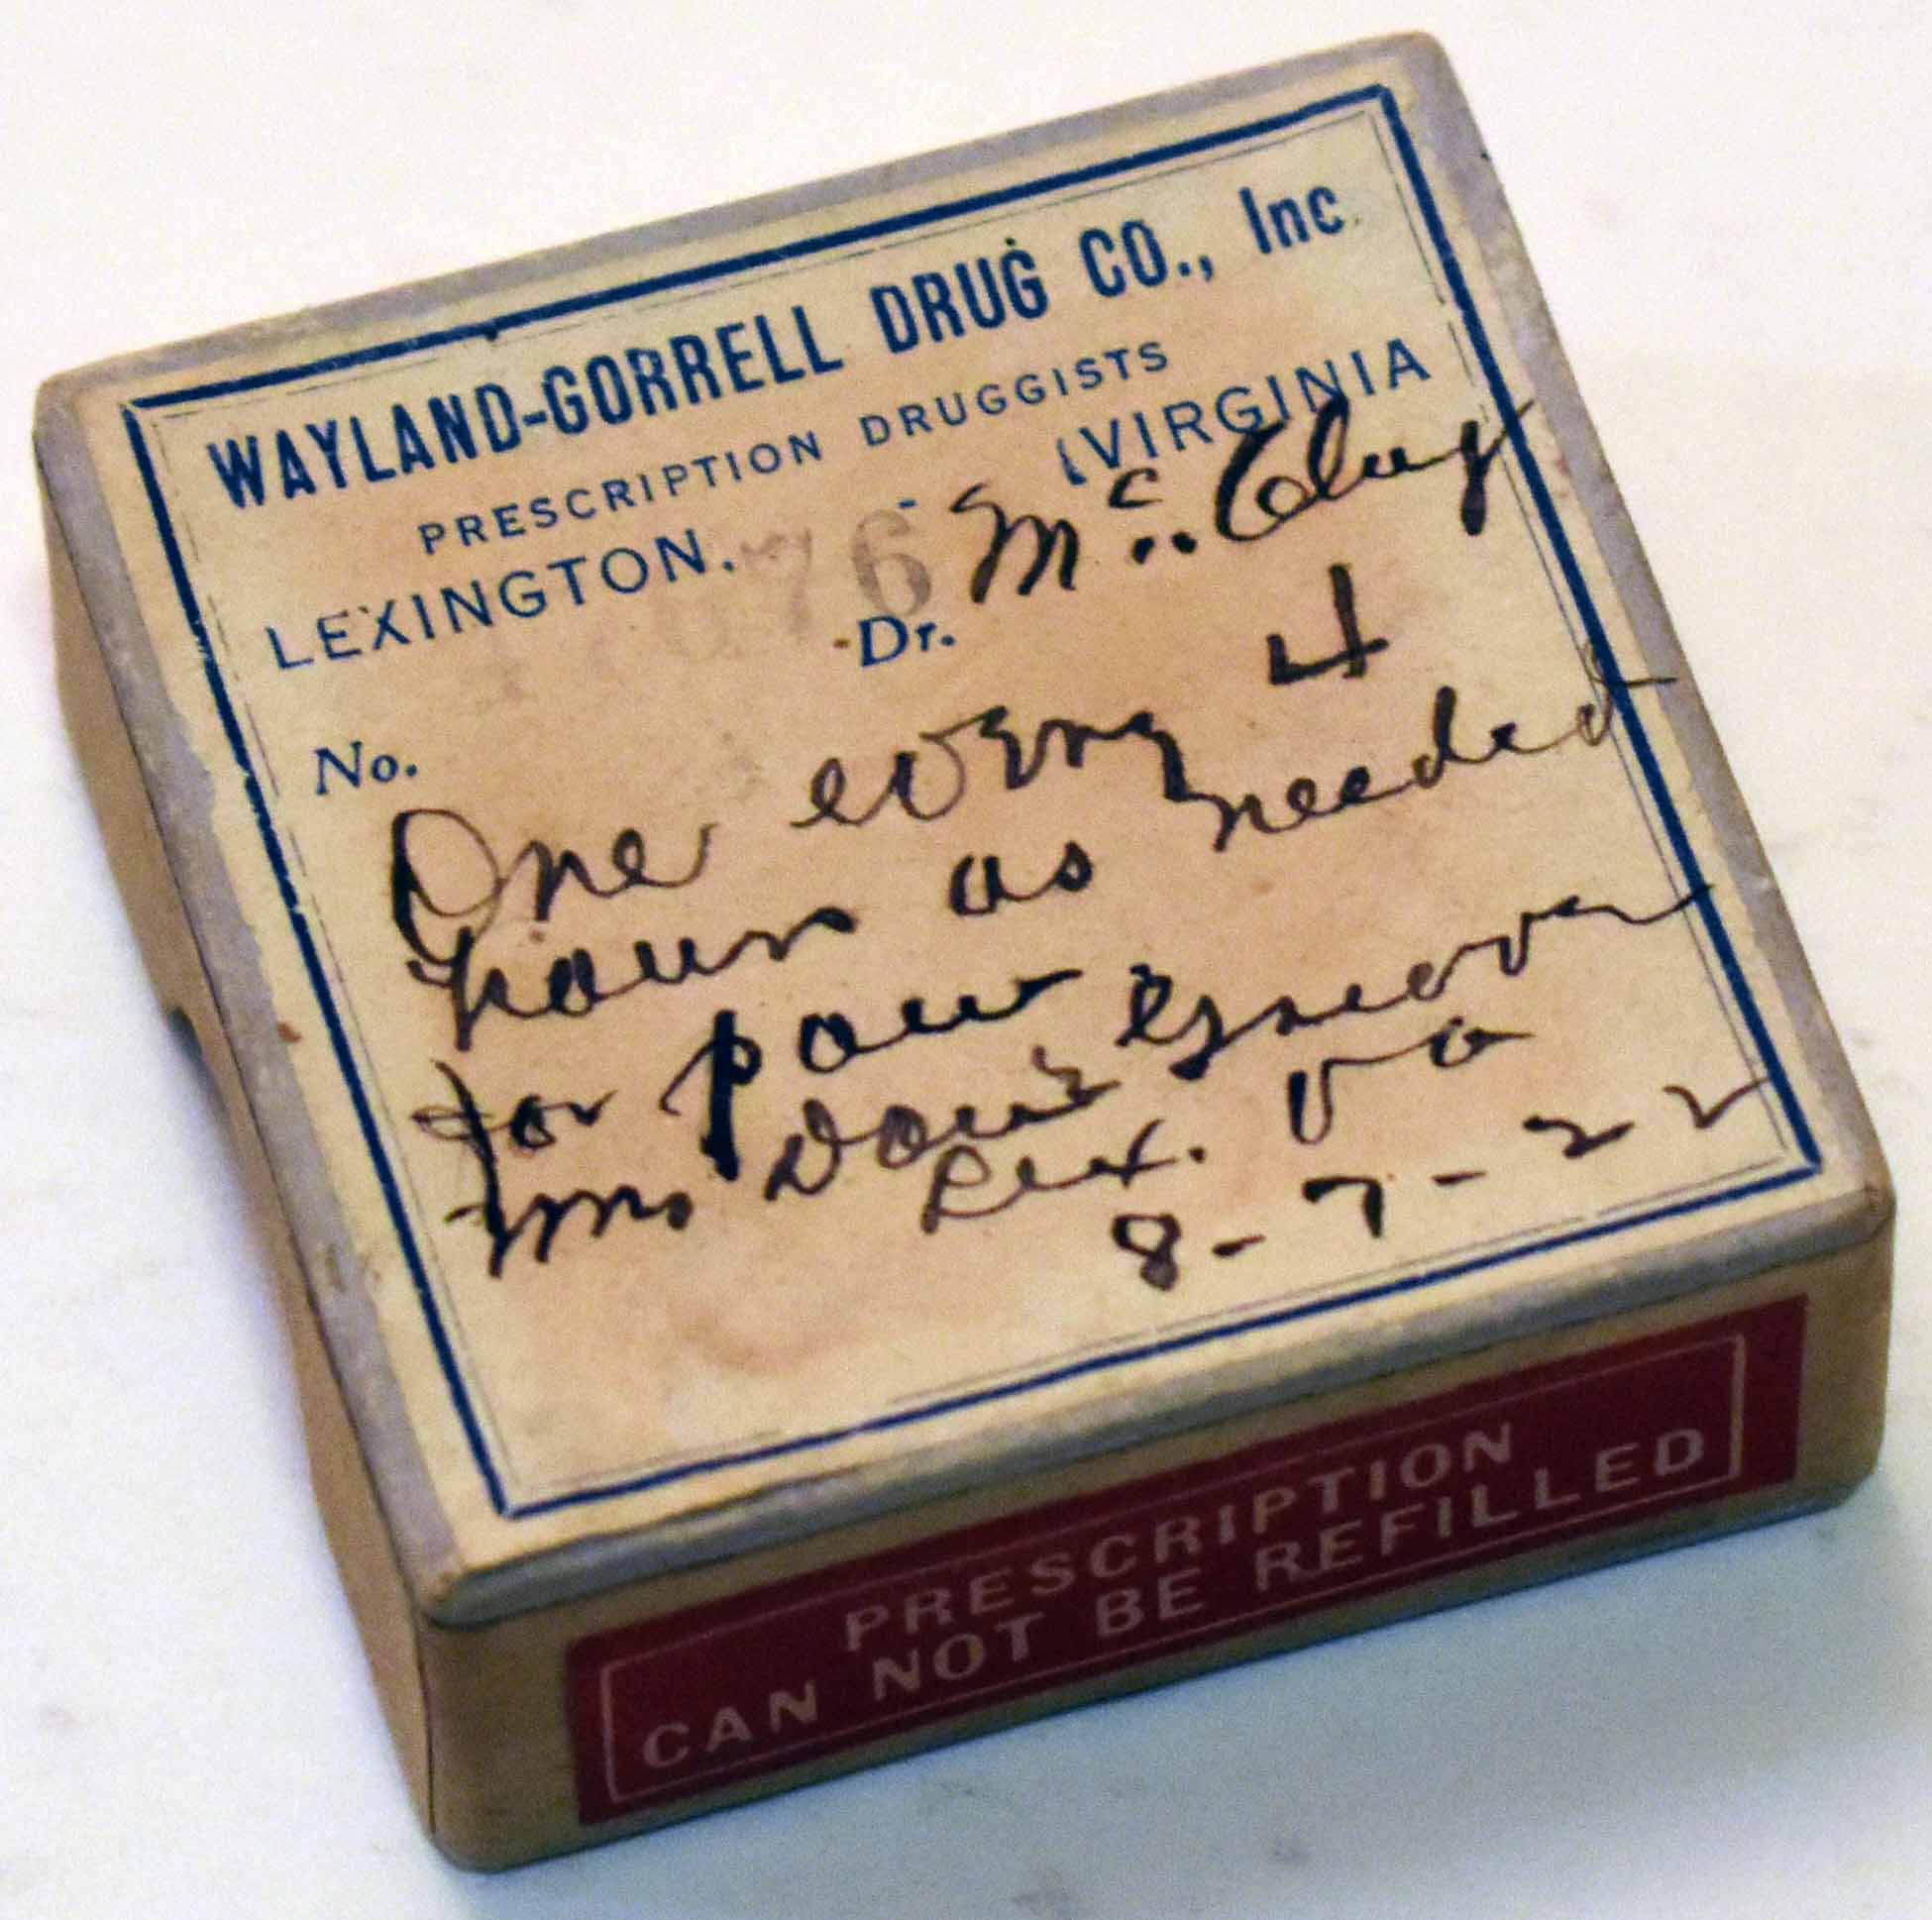 WAYLAND-GORRELL DRUG CO., Inc.
PRESCRIPTION DRUGGISTS
LEXINGTON, VIRGINIA
76
No. Dr. Mc.
One every 4
hours as needed
for pain
Mrs
Lex. Va
8-7-22
PRESCRIPTION
CAN NOT BE REFILLED